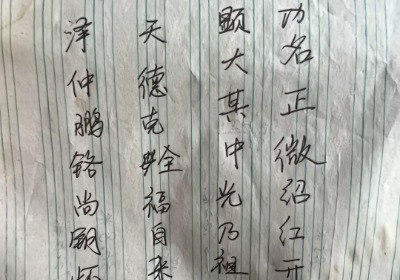 功名正微绍红开
显大其中光乃祖
天德克
福自来
泽仲鹏铭尚朝怀